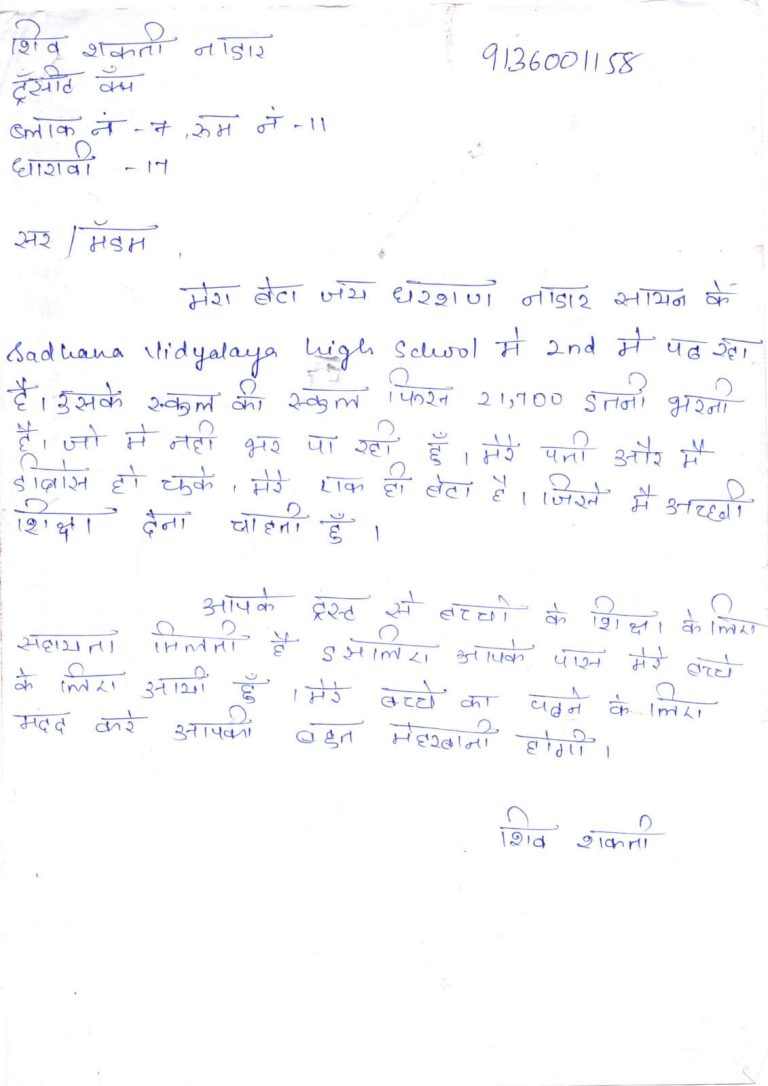 शिव शकती नाडार
9136001158
ट्रँसीट कँप
ब्लाक नं - 7, रूम नं - 11
धारावी - 17
सर / मॅडम
मेरा बेटा जय धरशण नाडार सायन के
Sadhana Vidyalaya high School मे 2nd मे पढ रहा
है। उसके स्कुल की स्कुल फिस 21,700 इतनी भरनी
है। जो मे नही भर पा रही हुँ। मेरे पती और मै
डीवोस हो चुके। मेरे एक ही बेटा है। जिसे मै अच्छी
शिक्षा देना चाहती हुँ।
आपके ट्रस्ट से बच्चो के शिक्षा के लिए
सहायता मिलती है इसलिए आपके पास मेरे बच्चे
के लिए आयी हुँ। मेरे बच्चे का पढने के लिए
मदद करे आपकी बहुत मेहरबानी होगी।
शिव शकती